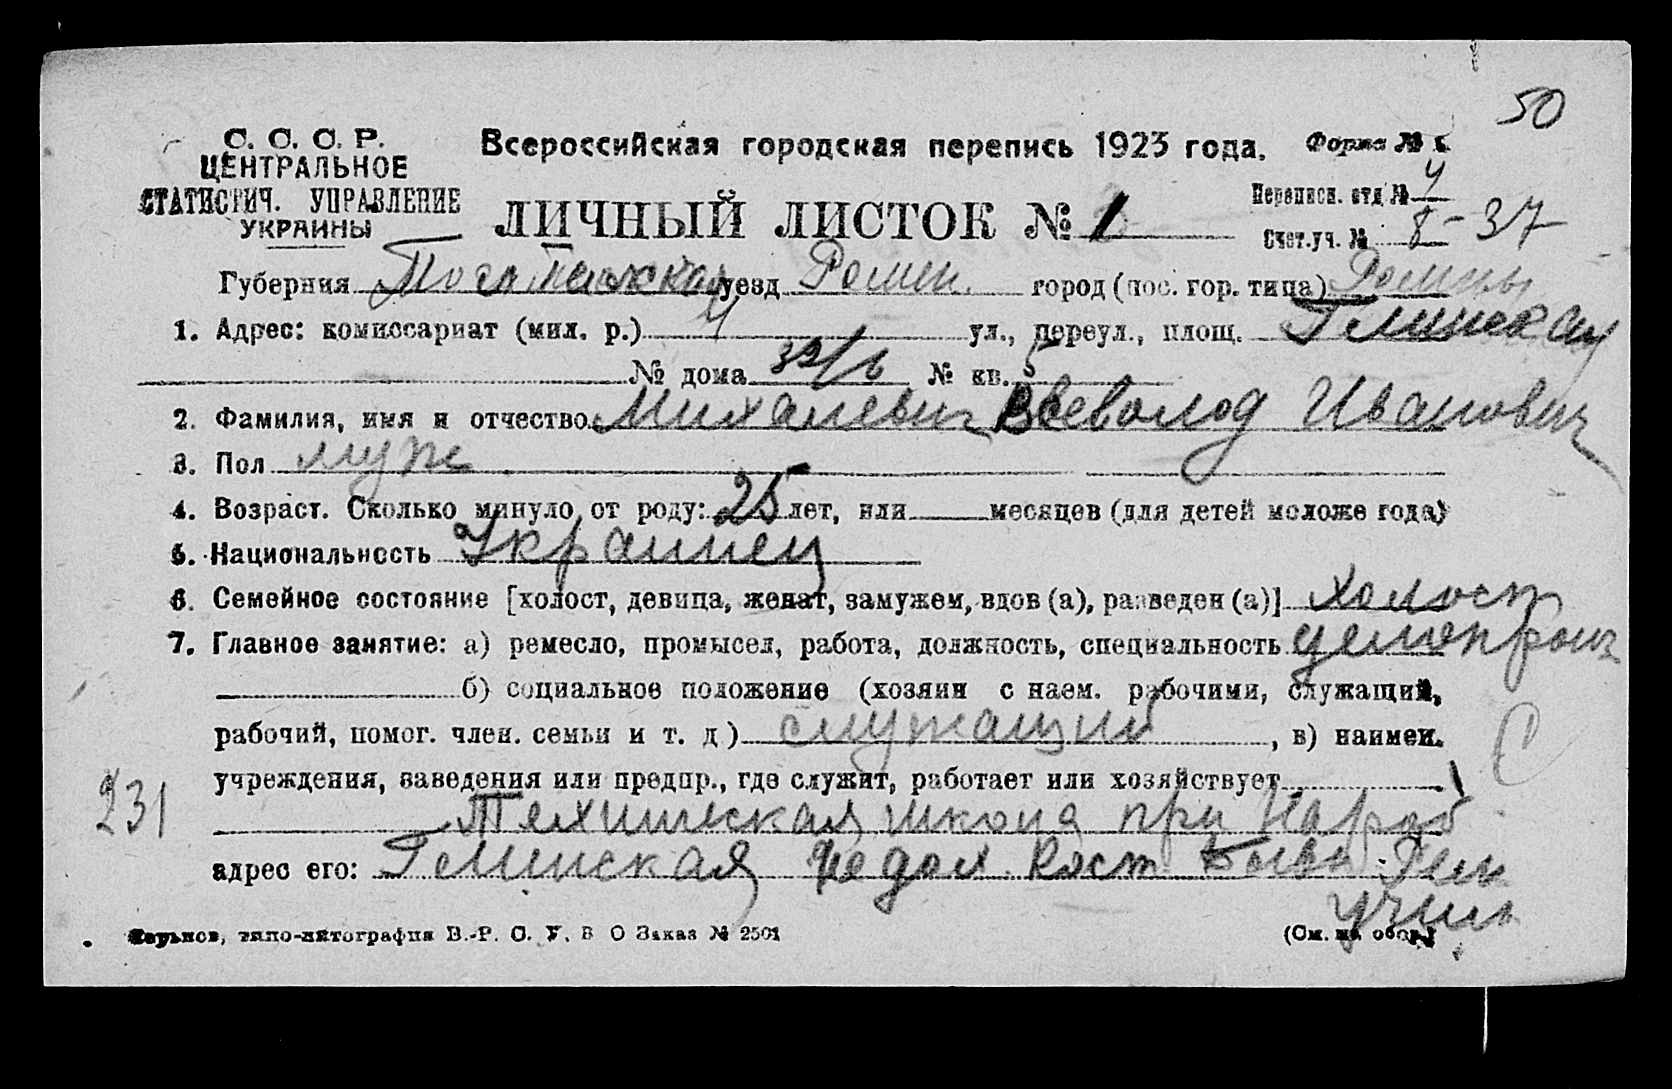 50
С. С. С. Р.
ЦЕНТРАЛЬНОЕ
СТАТИСТИЧ. УПРАВЛЕНИЕ
УКРАИНЫ
Всероссийская городская перепись 1923 года.
Форма №
ЛИЧНЫЙ ЛИСТОК № 1
Переписн. отд. № 4
Счет. уч. № 8 - 37
Губерния Полтавская уезд Ромен. город (пос. гор. типа) Ромны
1. Адрес: комиссариат (мил. р.) ул., переул., площ. Глинская
№ дома 39/6 № кв. 5
2. Фамилия, имя и отчество Михалевич Всеволод Иванович
3. Пол муж
4. Возраст. Сколько минуло от роду: 25 лет, или месяцев (для детей моложе года)
5. Национальность Украинец
6. Семейное состояние [холост, девица, женат, замужем, вдов (а), разведен (а)] холост
7. Главное занятие: а) ремесло, промысел, работа, должность, специальность делопроиз
б) социальное положение (хозяин с наем. рабочими, служащий,
рабочий, помог. член. семьи и т. д.) служащий, в) наимен.
учреждения, заведения или предпр., где служит, работает или хозяйствует
231
Техническая школа при Нароб
адрес его: Глинская
Харьков, типо-литография В.-Р. С. У. В О Заказ № 2501
(См. на обор.)